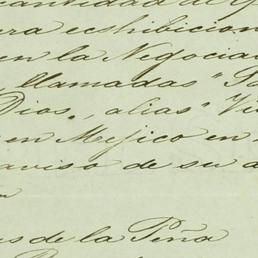 cantidad de
era ecshibicion
en la Negocia
llamadas "S
Dios, alias "Vi
en Mejico en
aviso de su
s de la Peña